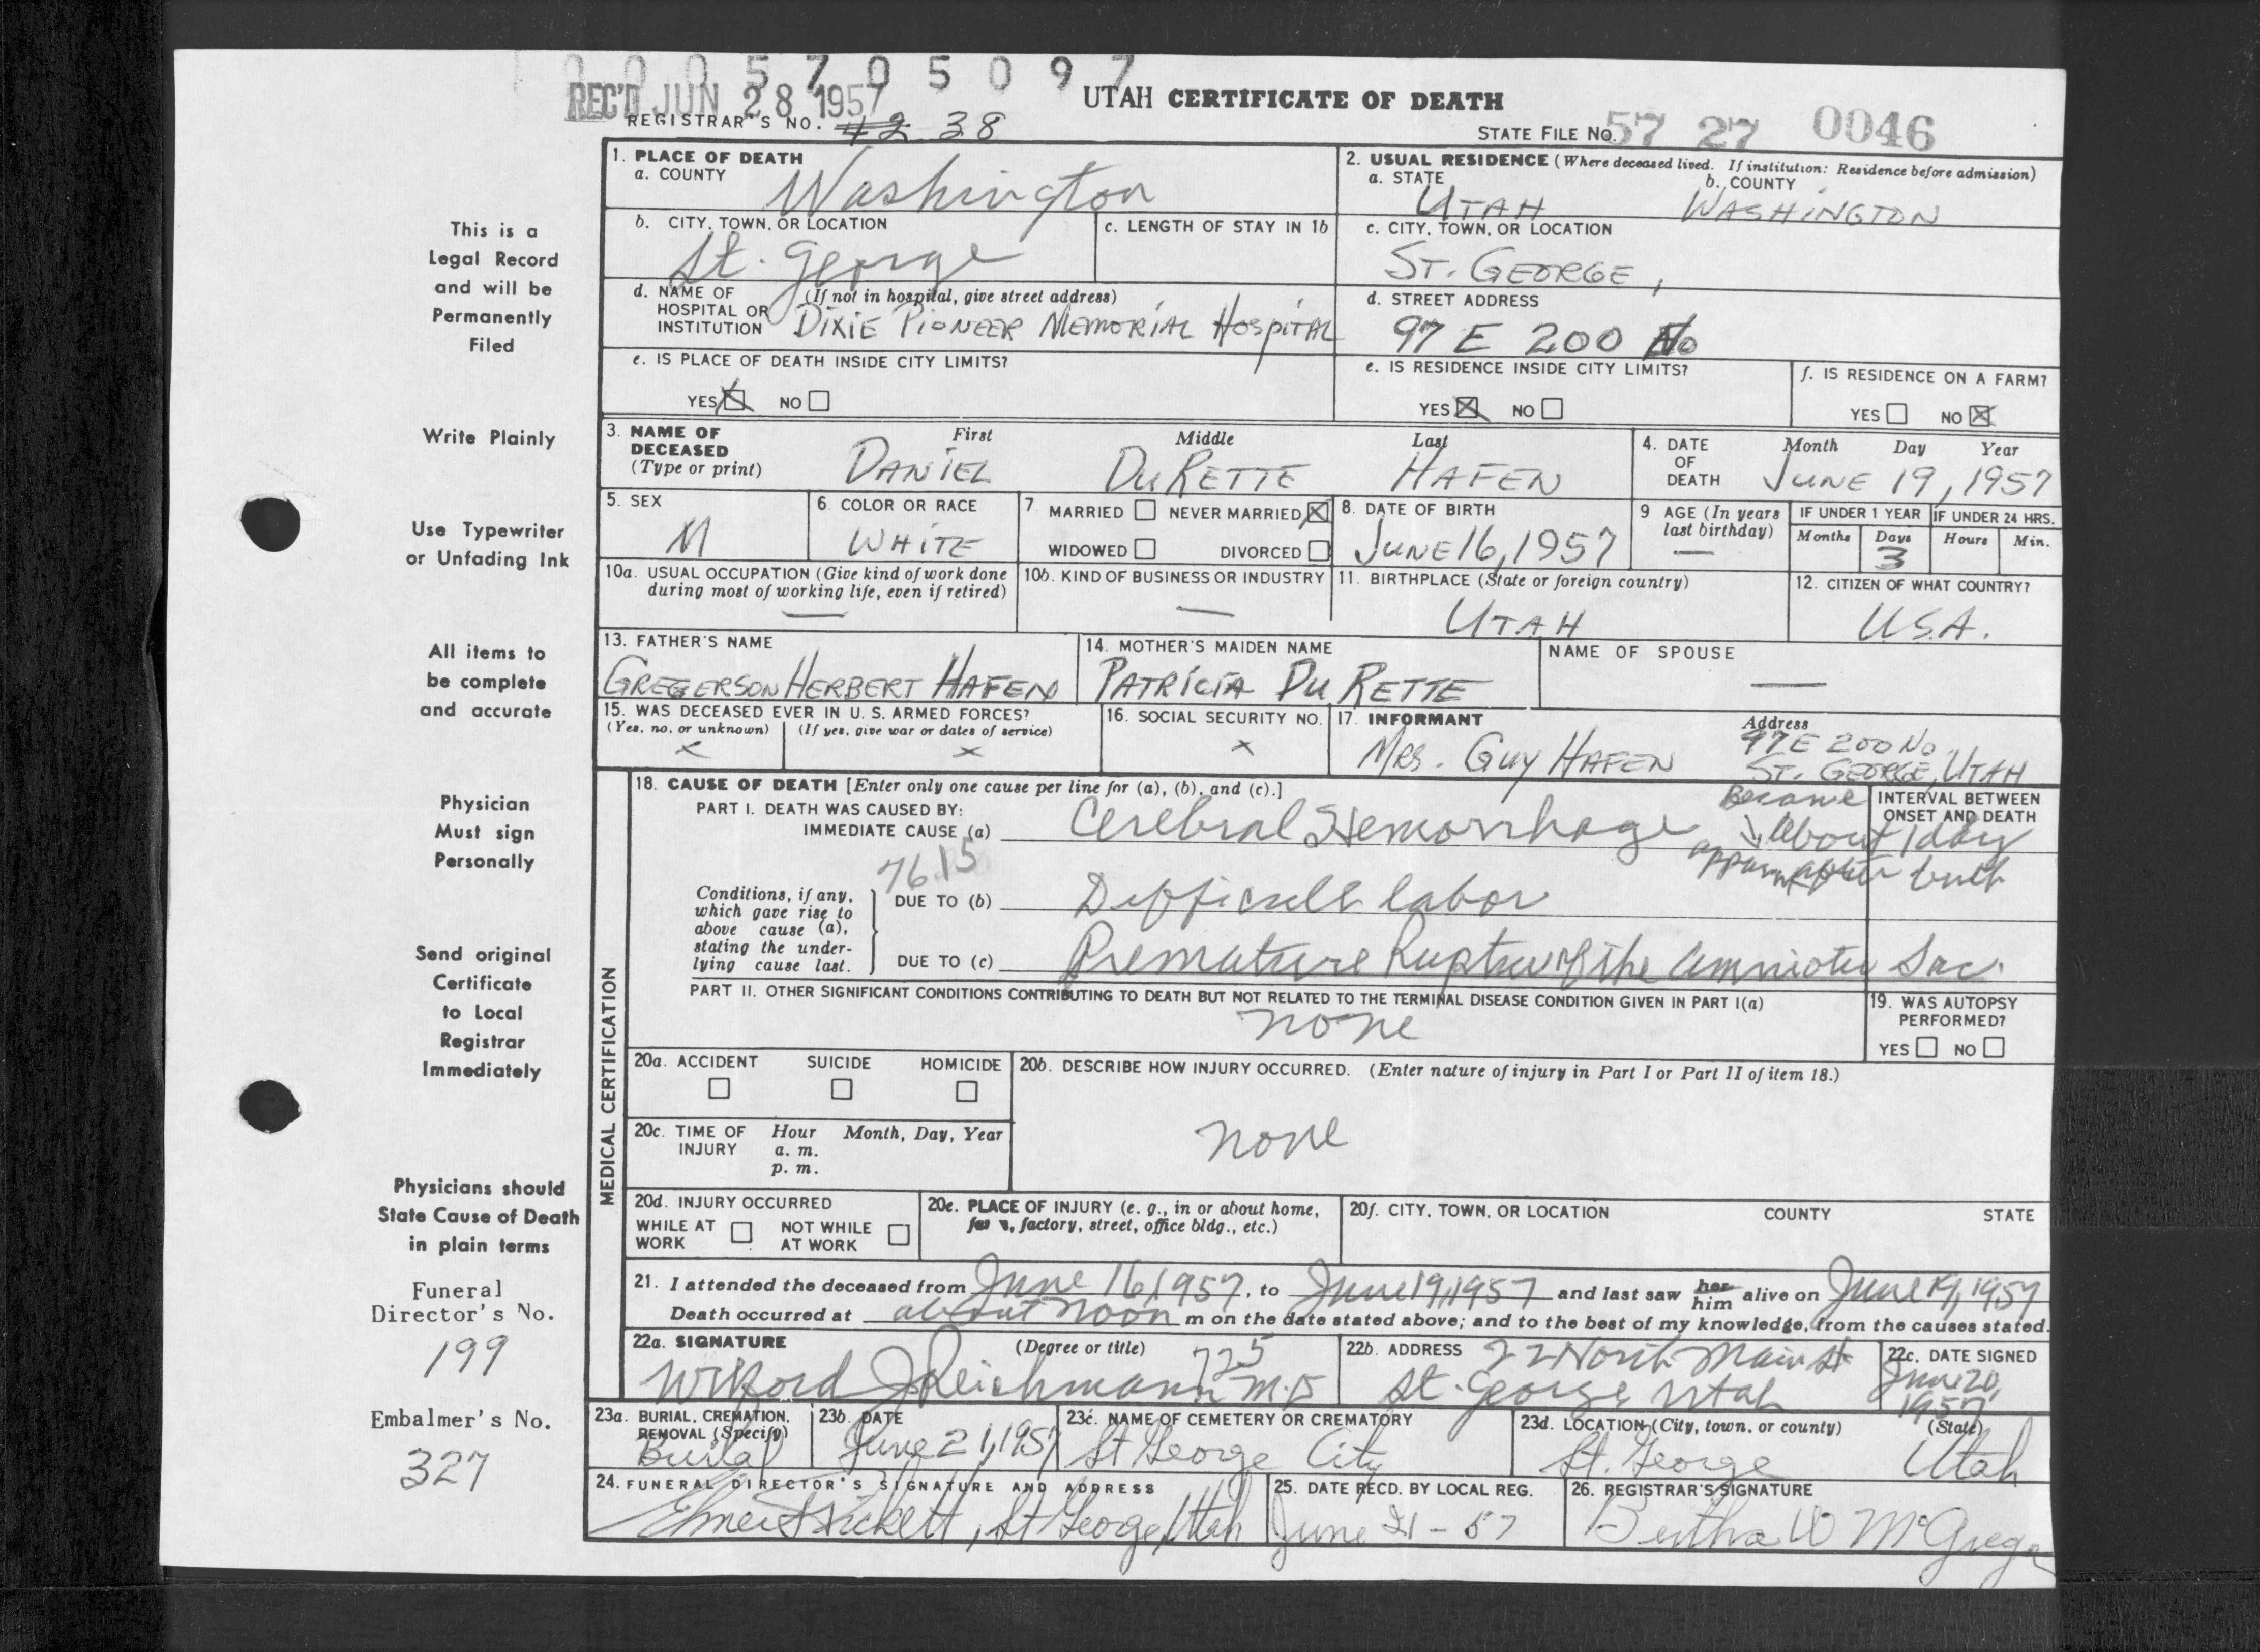 0 0 0 5 7 0 5 0 9 7
REC'D JUN 28 1957
UTAH CERTIFICATE OF DEATH
REGISTRAR'S NO. 42 38
STATE FILE NO. 57 27 0046
1. PLACE OF DEATH
a. COUNTY Washington
2. USUAL RESIDENCE (Where deceased lived. If institution: Residence before admission)
a. STATE UTAH b. COUNTY WASHINGTON
b. CITY, TOWN, OR LOCATION St. George
c. LENGTH OF STAY IN 1b
c. CITY, TOWN, OR LOCATION
ST. GEORGE,
d. NAME OF HOSPITAL OR INSTITUTION (If not in hospital, give street address)
DIXIE PIONEER MEMORIAL HOSPITAL
d. STREET ADDRESS
97 E 200 No
e. IS PLACE OF DEATH INSIDE CITY LIMITS?
YES ☒ NO ☐
e. IS RESIDENCE INSIDE CITY LIMITS?
YES ☒ NO ☐
f. IS RESIDENCE ON A FARM?
YES ☐ NO ☒
3. NAME OF DECEASED (Type or print)
First Middle Last
DANIEL DURETTE HAFEN
4. DATE OF DEATH Month Day Year
JUNE 19, 1957
5. SEX
M
6. COLOR OR RACE
WHITE
7. MARRIED ☐ NEVER MARRIED ☒
WIDOWED ☐ DIVORCED ☐
8. DATE OF BIRTH
JUNE 16, 1957
9 AGE (In years last birthday)
—
IF UNDER 1 YEAR IF UNDER 24 HRS.
Months Days Hours Min.
3
10a. USUAL OCCUPATION (Give kind of work done during most of working life, even if retired)
—
10b. KIND OF BUSINESS OR INDUSTRY
—
11. BIRTHPLACE (State or foreign country)
UTAH
12. CITIZEN OF WHAT COUNTRY?
U.S.A.
13. FATHER'S NAME
GREGERSON HERBERT HAFEN
14. MOTHER'S MAIDEN NAME
PATRICIA DU RETTE
NAME OF SPOUSE
—
15. WAS DECEASED EVER IN U. S. ARMED FORCES?
(Yes, no, or unknown) (If yes, give war or dates of service)
x x
16. SOCIAL SECURITY NO.
x
17. INFORMANT Address
MRS. GUY HAFEN 97 E 200 No.
ST. GEORGE, UTAH
MEDICAL CERTIFICATION
18. CAUSE OF DEATH [Enter only one cause per line for (a), (b), and (c).]
PART I. DEATH WAS CAUSED BY:
IMMEDIATE CAUSE (a) Cerebral Hemorrhage
INTERVAL BETWEEN ONSET AND DEATH
Became
About 1 day
after birth
76.15
Conditions, if any, which gave rise to above cause (a), stating the underlying cause last.
DUE TO (b) Difficult labor
DUE TO (c) Premature Rupture of the Amniotic Sac.
PART II. OTHER SIGNIFICANT CONDITIONS CONTRIBUTING TO DEATH BUT NOT RELATED TO THE TERMINAL DISEASE CONDITION GIVEN IN PART I(a)
none
19. WAS AUTOPSY PERFORMED?
YES ☐ NO ☐
20a. ACCIDENT SUICIDE HOMICIDE
☐ ☐ ☐
20b. DESCRIBE HOW INJURY OCCURRED. (Enter nature of injury in Part I or Part II of item 18.)
none
20c. TIME OF INJURY Hour Month, Day, Year
a. m.
p. m.
20d. INJURY OCCURRED
WHILE AT WORK ☐ NOT WHILE AT WORK ☐
20e. PLACE OF INJURY (e. g., in or about home, factory, street, office bldg., etc.)
20f. CITY, TOWN, OR LOCATION COUNTY STATE
21. I attended the deceased from June 16, 1957, to June 19, 1957 and last saw her him alive on June 19, 1957
Death occurred at about noon m on the date stated above; and to the best of my knowledge, from the causes stated.
22a. SIGNATURE (Degree or title) 725
Wilford J Reichmann M.D
22b. ADDRESS 22 North Main St
St. George Utah
22c. DATE SIGNED
June 20, 1957
23a. BURIAL, CREMATION, REMOVAL (Specify)
Burial
23b. DATE
June 21, 1957
23c. NAME OF CEMETERY OR CREMATORY
St George City
23d. LOCATION (City, town, or county) (State)
St. George Utah
24. FUNERAL DIRECTOR'S SIGNATURE AND ADDRESS
Elmer Pickett, St George, Utah
25. DATE RECD. BY LOCAL REG.
June 21-57
26. REGISTRAR'S SIGNATURE
Bertha W McGregor
This is a
Legal Record
and will be
Permanently
Filed
Write Plainly
Use Typewriter
or Unfading Ink
All items to
be complete
and accurate
Physician
Must sign
Personally
Send original
Certificate
to Local
Registrar
Immediately
Physicians should
State Cause of Death
in plain terms
Funeral
Director's No.
199
Embalmer's No.
327